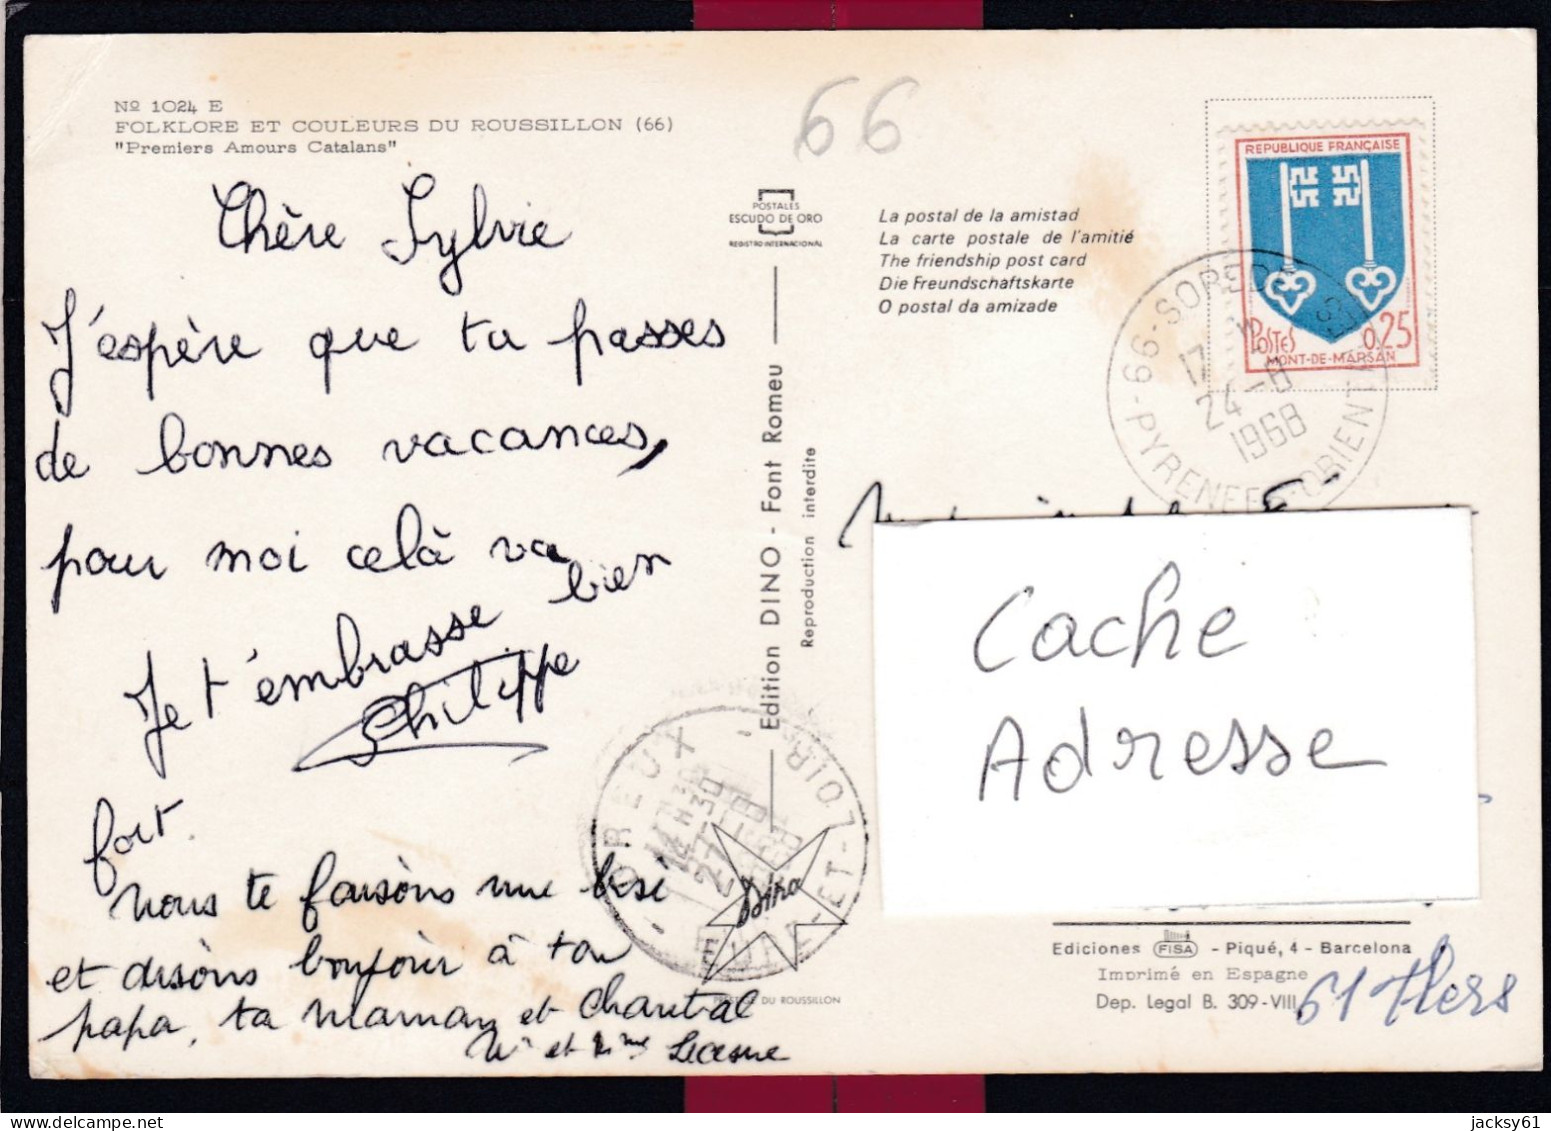 Nº 1024 E
FOLKLORE ET COULEURS DU ROUSSILLON (66)
"Premiers Amours Catalans"
Chère Sylvie
J'espère que tu passes
de bonnes vacances,
pour moi celà va
bien
Je t'embrasse
Philippe
fort.
nous te faisons une bise
et disons bonjour à ton
papa, ta maman et Chantal
Mr et Mme Lecesne
66
POSTALES
ESCUDO DE ORO
REGISTRO INTERNACIONAL
La postal de la amistad
La carte postale de l'amitié
The friendship post card
Die Freundschaftskarte
O postal da amizade
Edition DINO - Font Romeu
Reproduction interdite
REPUBLIQUE FRANÇAISE
POSTES
0,25
MONT-DE-MARSAN
66-SOREDE
17 H
24-8
1968
PYRENEES-ORIENTALES
DREUX
EURE-ET-LOIR
Dino
PRESTIGE DU ROUSSILLON
Cache
Adresse
Ediciones FISA - Piqué, 4 - Barcelona
Imprimé en Espagne
Dep. Legal B. 309-VIII
61 Flers
jacksy61